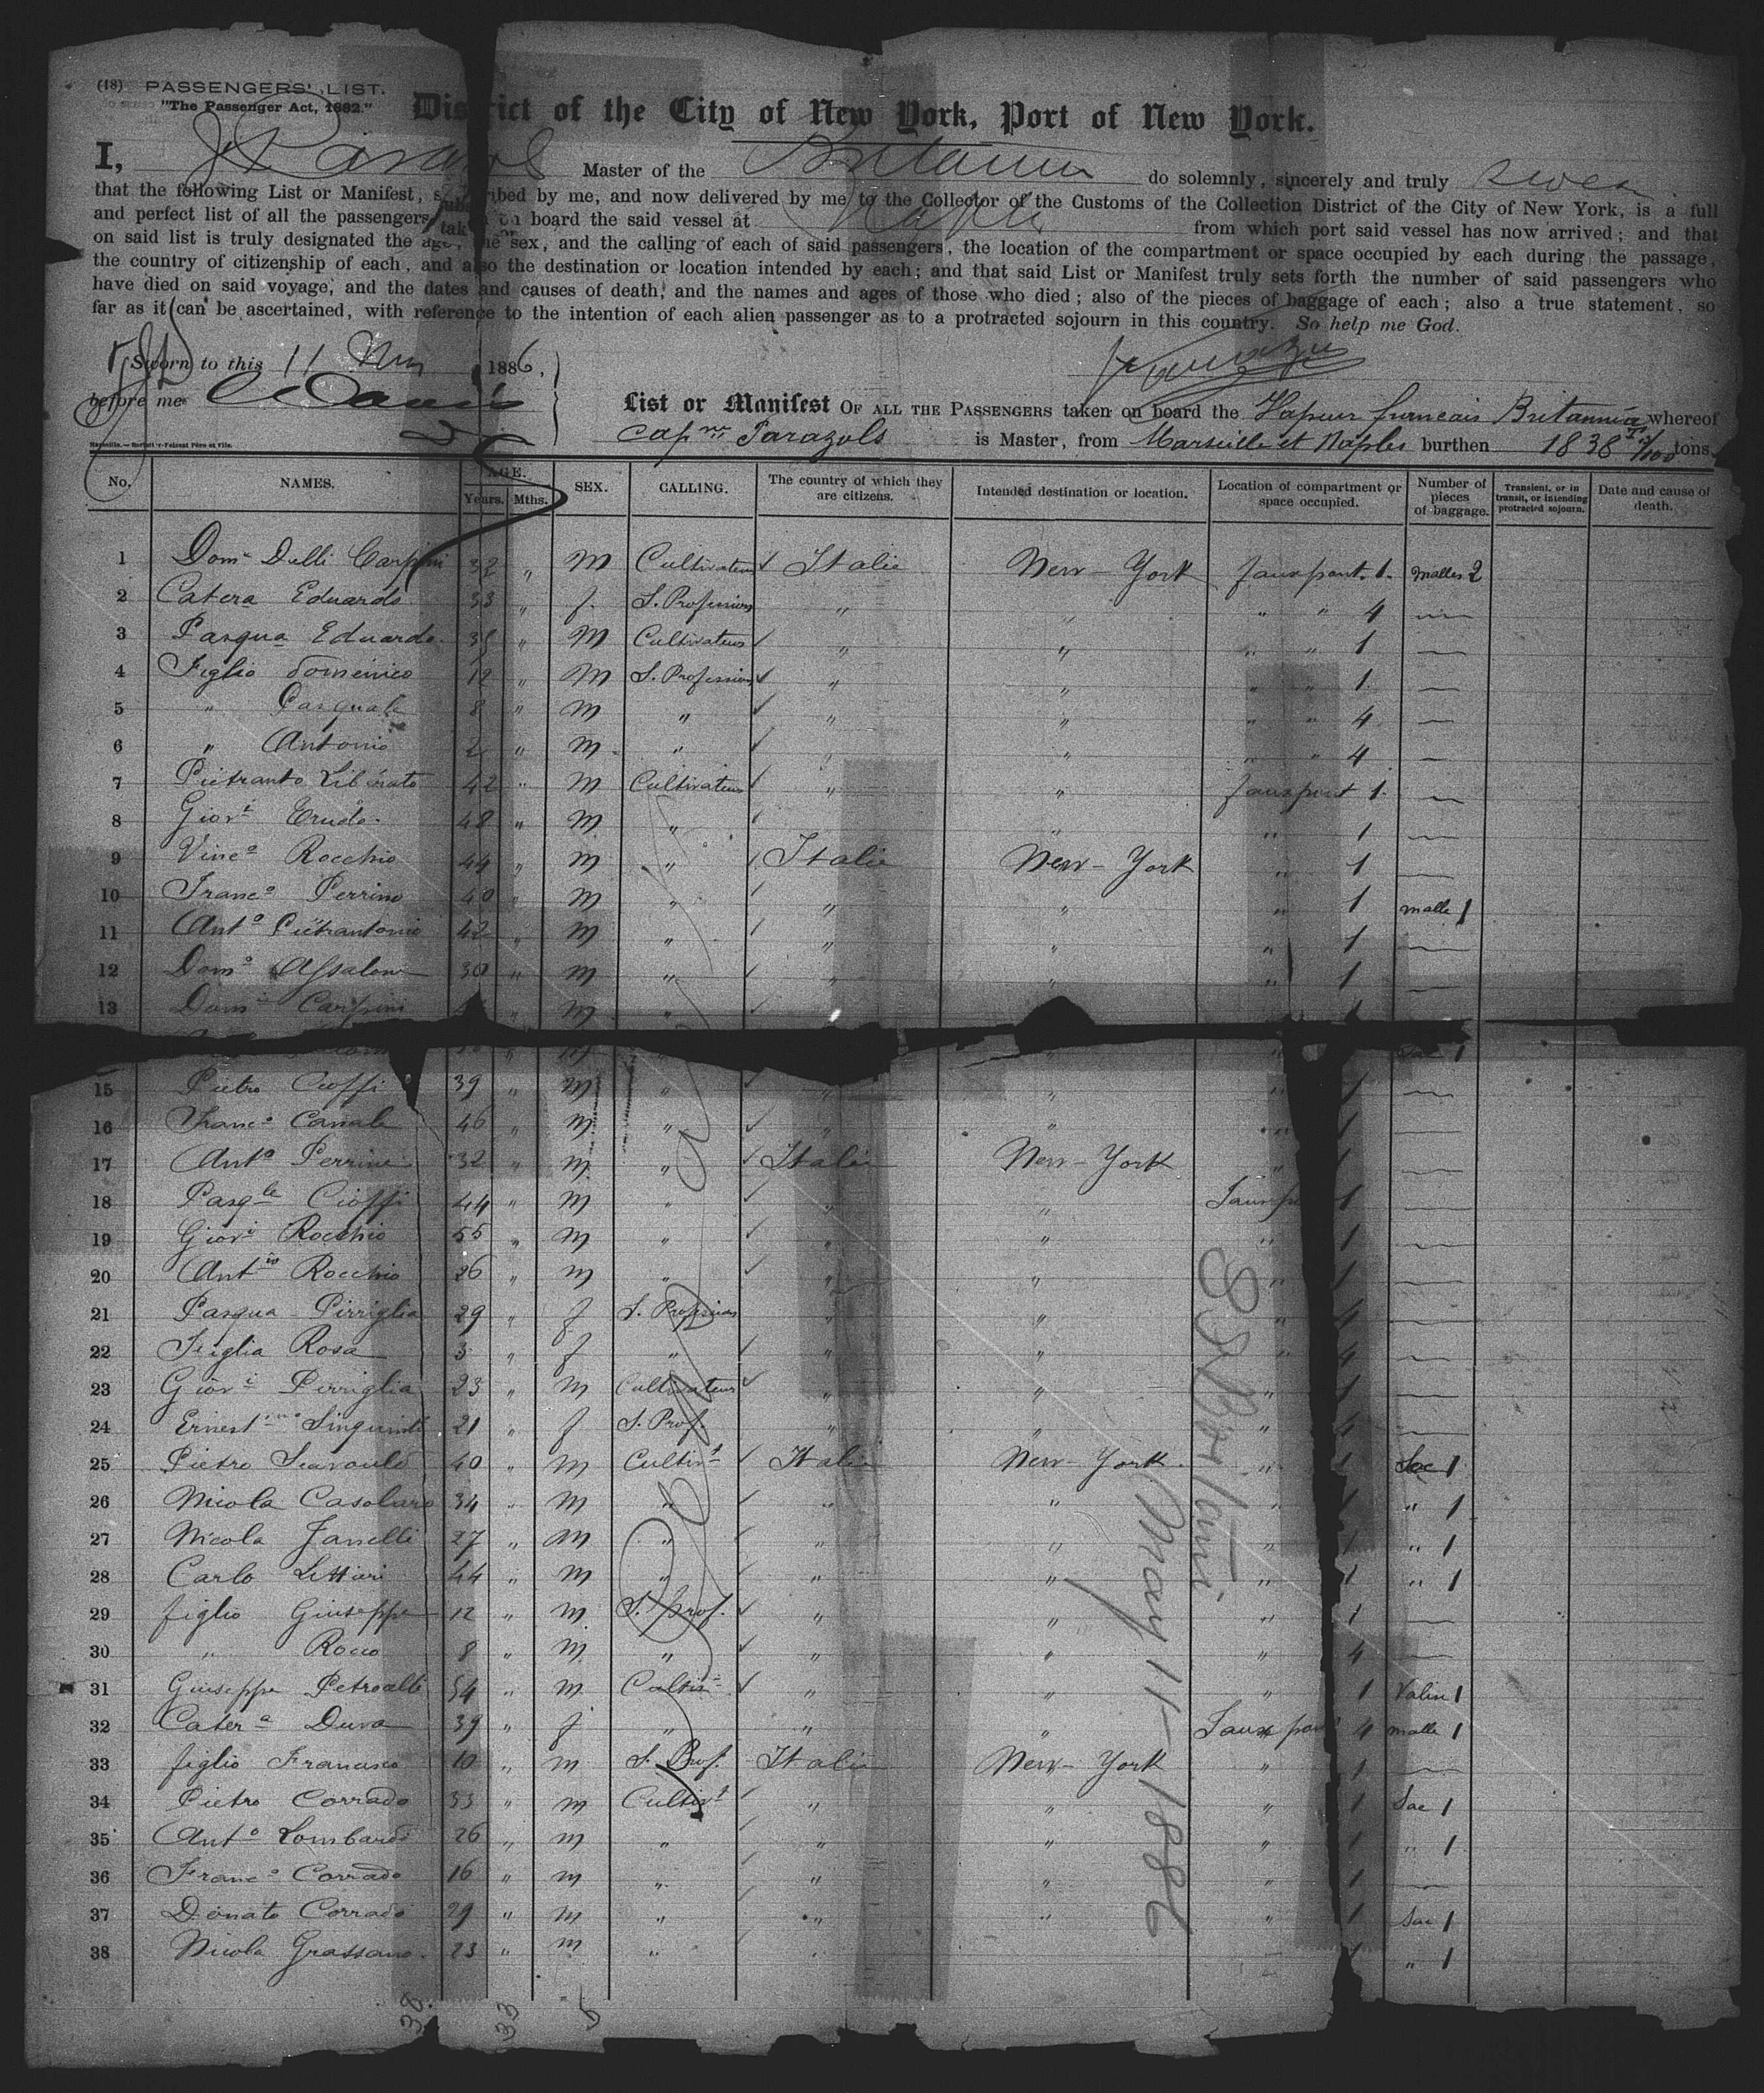 (18) PASSENGERS' LIST.
"The Passenger Act, 1882."
District of the City of New York, Port of New York.
I, Master of the Britannia do solemnly, sincerely and truly swear
that the following List or Manifest, subscribed by me, and now delivered by me to the Collector of the Customs of the Collection District of the City of New York, is a full
and perfect list of all the passengers taken on board the said vessel at Naples from which port said vessel has now arrived; and that
on said list is truly designated the age, the sex, and the calling of each of said passengers, the location of the compartment or space occupied by each during the passage,
the country of citizenship of each, and also the destination or location intended by each; and that said List or Manifest truly sets forth the number of said passengers who
have died on said voyage, and the dates and causes of death, and the names and ages of those who died; also of the pieces of baggage of each; also a true statement, so
far as it can be ascertained, with reference to the intention of each alien passenger as to a protracted sojourn in this country. So help me God.
Sworn to this 11 May 1886,
before me
List or Manifest OF ALL THE PASSENGERS taken on board the Vapeur francais Britannia whereof
cap ne Parazols is Master, from Marseille et Naples burthen 1838 tons.
No. NAMES. AGE. Years. Mths. SEX. CALLING. The country of which they are citizens. Intended destination or location. Location of compartment or space occupied. Number of pieces of baggage. Transient, or in transit, or intending protracted sojourn. Date and cause of death.
1 Dom Delli Carpini 32 " M Cultivateur Italie New-York fauxpont. 1. Malles 2
2 Catera Eduardo 33 " f. S. Profession " " " " 4
3 Pasqua Eduardo " M Cultivateur " " " " 1
4 Figlio Domenico 12 " M S. Profession " " " " 1
5 " Pasquale 8 " M " " " " " 4
6 " Antonio 2 " M " " " " " 4
7 Pietranto Liberato 42 " M Cultivateur " " fauxpont 1
8 Giovi 48 " M " " " " 1
9 Vinco Rocchio 44 " M " Italie New-York " 1
10 Franco Perrino 40 " M " " " " 1 malle 1
11 Anto Pietrantonio 42 " M " " " " 1
12 Domo Assalone 30 " M " " " " 1
13 Domi Carpini " M "
15 Pietro Cioffi 39 " M " " " " 1
16 Franco Canale 46 " M " " " " 1
17 Anto Perrini 32 " M " Italie New-York " 1
18 Pasqle Cioffi 44 " M " " " fauxp 1
19 Giovi Rocchio 55 " M " " " " 1
20 Antio Rocchio 26 " M " " " " 1
21 Pasqua Pirriglia 29 " f S. Profession " " " 4
22 Figlia Rosa 3 " f " " " " 4
23 Giovi Pirriglia 23 " M Cultivateur " " " 1
24 21 " f S. Prof. " " " 4
25 Pietro 40 " M Cultivt Italie New-York " 1 Sac 1
26 Nicola Casolaro 34 " M " " " " 1 " 1
27 Nicola 27 " M " " " " 1 " 1
28 Carlo Lettieri 44 " M " " " " 1 " 1
29 figlio Giuseppe 12 " M S. Prof. " " " 1
30 " Rocco 8 " M " " " " 4
31 Giuseppe 54 " M Cultivt " " " 1 Valise 1
32 Catera Duva 39 " f " " " Faux pont 4 malle 1
33 figlio Francesco 10 " M S. Prof. Italie New-York " 1
34 Pietro Corrado 33 " M Cultivt " " " 1 Sac 1
35 Anto Lombardi 26 " M " " " " 1 " 1
36 Franco Corrado 16 " M " " " " 1
37 Donato Corrado 29 " M " " " " 1 Sac 1
38 Nicola Grassano 23 " M " 1 " 1
SS Britania
May 11-1886
38
33
5